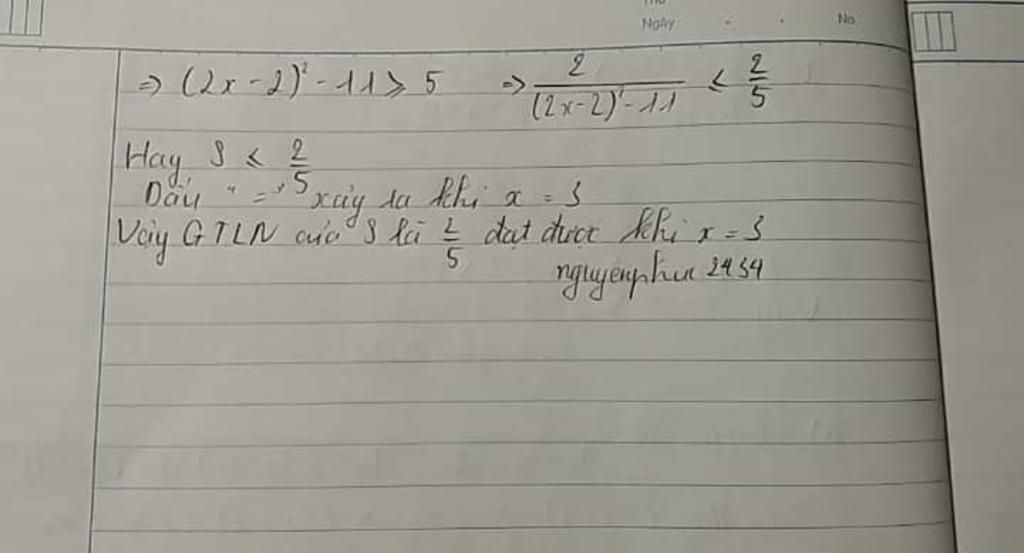 Ngày No.
⇒ (2x-2)² - 11 ≥ 5 ⇒ 2/((2x-2)² - 11) ≤ 2/5
Hay S ≤ 2/5
Dấu "=" xảy ra khi x = 3
Vậy GTLN của S là 2/5 đạt được khi x = 3
nguyenphuc 2434